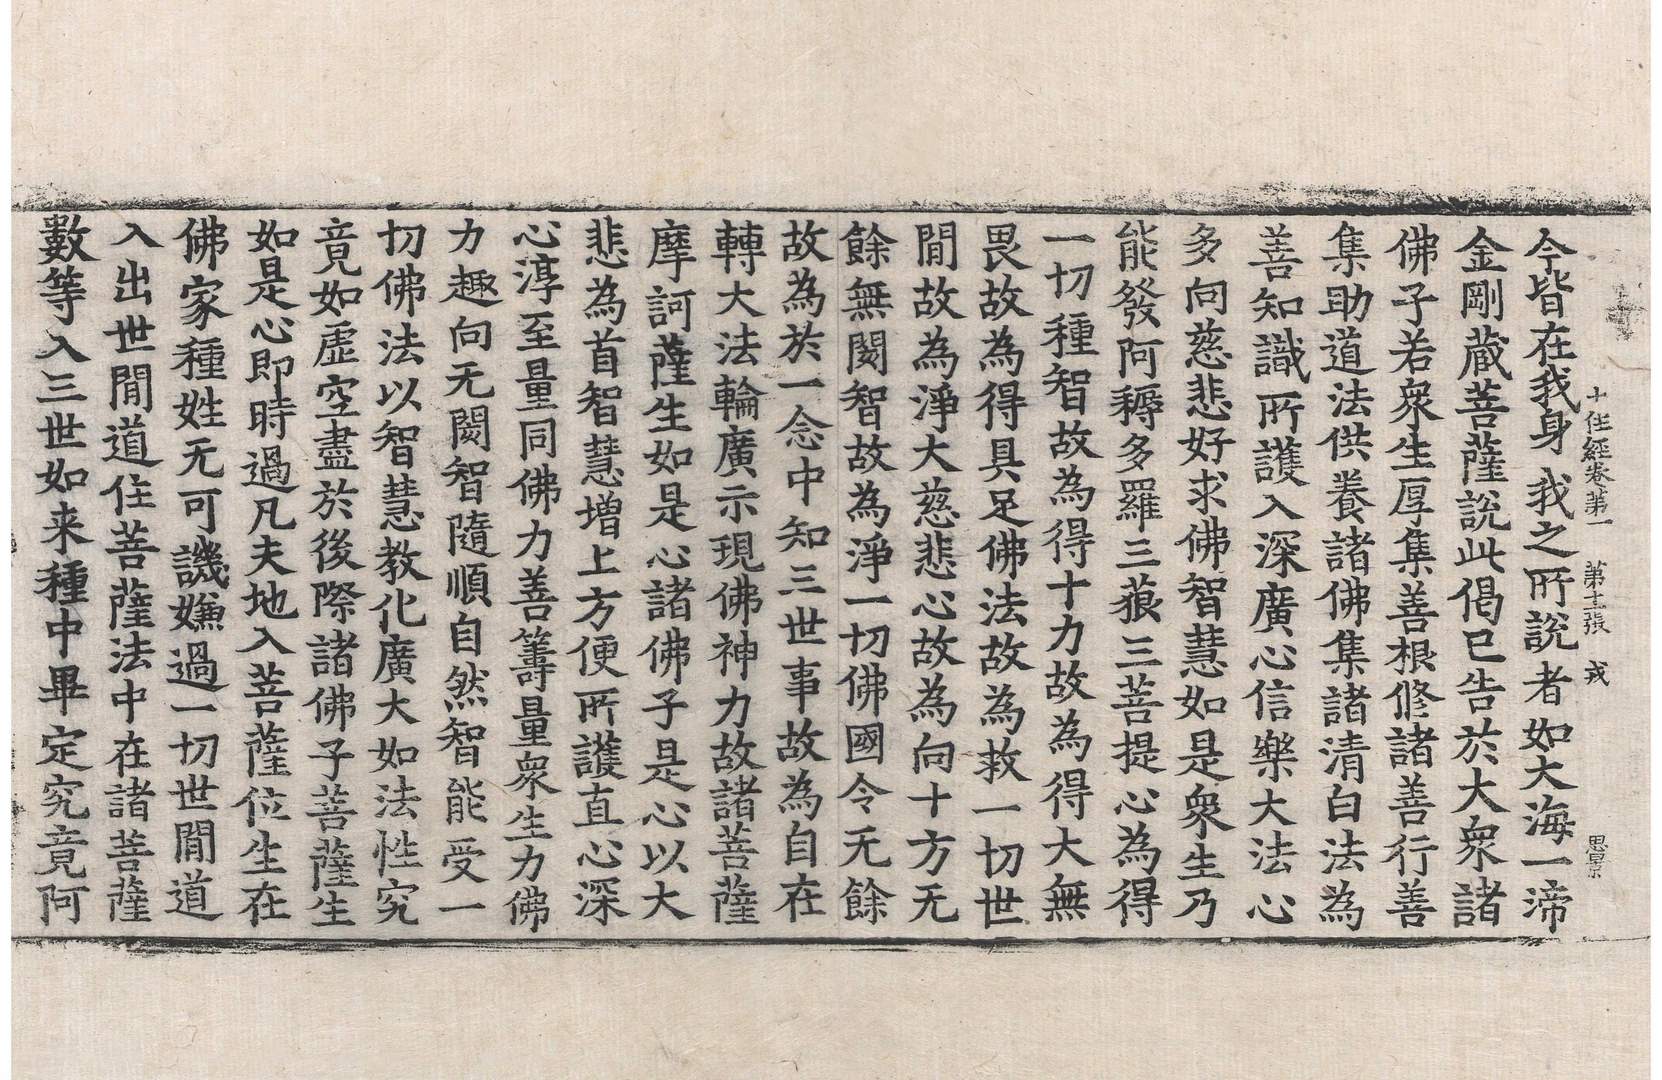 十住經卷第一　第十二張　戎　思景
今皆在我身我之所說者如大海一渧
金剛藏菩薩說此偈已告於大衆諸
佛子若衆生厚集善根修諸善行善
集助道法供養諸佛集諸清白法為
善知識所護入深廣心信樂大法心
多向慈悲好求佛智慧如是衆生乃
能發阿耨多羅三藐三菩提心為得
一切種智故為得十力故為得大無
畏故為得具足佛法故為救一切世
閒故為淨大慈悲心故為向十方无
餘無閡智故為淨一切佛國令无餘
故為於一念中知三世事故為自在
轉大法輪廣示現佛神力故諸菩薩
摩訶薩生如是心諸佛子是心以大
悲為首智慧增上方便所護直心深
心淳至量同佛力善籌量衆生力佛
力趣向无閡智隨順自然智能受一
切佛法以智慧教化廣大如法性究
竟如虛空盡於後際諸佛子菩薩生
如是心即時過凡夫地入菩薩位生在
佛家種姓无可譏嫌過一切世閒道
入出世閒道住菩薩法中在諸菩薩
數等入三世如来種中畢定究竟阿